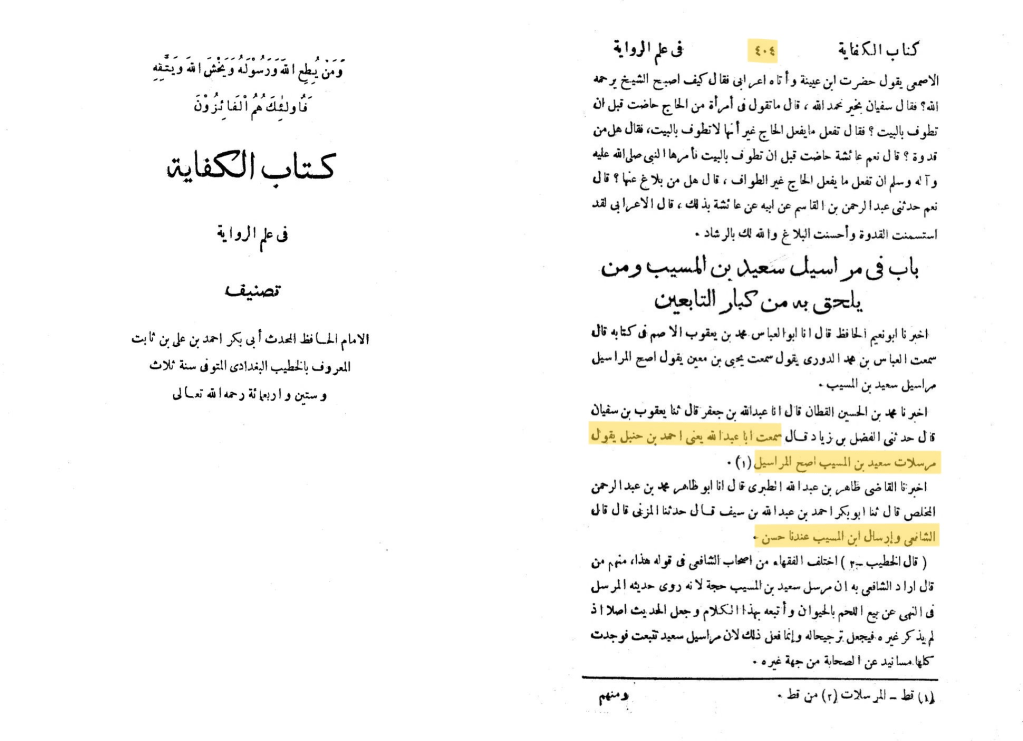 كتاب الكفاية ٤٠٤ فى علم الرواية
الاصمعى يقول حضرت ابن عيينة وأتاه اعرابى فقال كيف اصبح الشيخ يرحمه
الله؟ فقال سفيان بخير نحمد الله ، قال ماتقول فى أمرأة من الحاج حاضت قبل ان
تطوف بالبيت ؟ فقال تفعل مايفعل الحاج غير أنها لاتطوف بالبيت، فقال هل من
قدوة ؟ قال نعم عائشة حاضت قبل ان تطوف بالبيت فأمرها النبى صلى الله عليه
وآله وسلم ان تفعل ما يفعل الحاج غير الطواف ، قال هل من بلاغ عنها ؟ قال
نعم حدثنى عبد الرحمن بن القاسم عن ابيه عن عائشة بذلك ، قال الاعرابى لقد
استسمنت القدوة وأحسنت البلاغ والله لك بالرشاد .
باب فى مراسيل سعيد بن المسيب ومن
يلحق به من كبار التابعين
اخبرنا ابونعيم الحافظ قال انا ابو العباس محمد بن يعقوب الاصم فى كتابه قال
سمعت العباس بن محمد الدورى يقول سمعت يحيى بن معين يقول اصح المراسيل
مراسيل سعيد بن المسيب .
اخبرنا محمد بن الحسين القطان قال انا عبدالله بن جعفر قال ثنا يعقوب بن سفيان
قال حدثنى الفضل بن زياد قال سمعت ابا عبدالله يعنى احمد بن حنبل يقول
مرسلات سعيد بن المسيب اصح المراسيل (١) .
اخبرنا القاضى طاهر بن عبد الله الطبرى قال انا ابو طاهر محمد بن عبد الرحمن
المخلص قال ثنا ابوبكر احمد بن عبدالله بن سيف قال حدثنا المزنى قال قال
الشافعى وإرسال ابن المسيب عندنا حسن .
( قال الخطيب -٢ ) اختلف الفقهاء من اصحاب الشافعى فى قوله هذا، منهم من
قال اراد الشافعى به ان مرسل سعيد بن المسيب حجة لانه روى حديثه المرسل
فى النهى عن بيع اللحم بالحيوان وأتبعه بهذا الكلام وجعل الحديث اصلا اذ
لم يذكر غيره فيجعل ترجيحاله وإنما فعل ذلك لان مراسيل سعيد تتبعت فوجدت
كلها مسانيد عن الصحابة من جهة غيره .
(١) قط - المرسلات (٢) من قط .
ومنهم
وَمَنْ يُطِعِ اللهَ وَرَسُولَهُ وَيَخْشَ اللهَ وَيَتَّقْهِ
فَأُولَئِكَ هُمُ الْفَائِزُونَ
كتاب الكفاية
فى علم الرواية
تصنيف
الامام الحافظ المحدث أبى بكر احمد بن على بن ثابت
المعروف بالخطيب البغدادى المتوفى سنة ثلاث
وستين واربعمائة رحمه الله تعالى